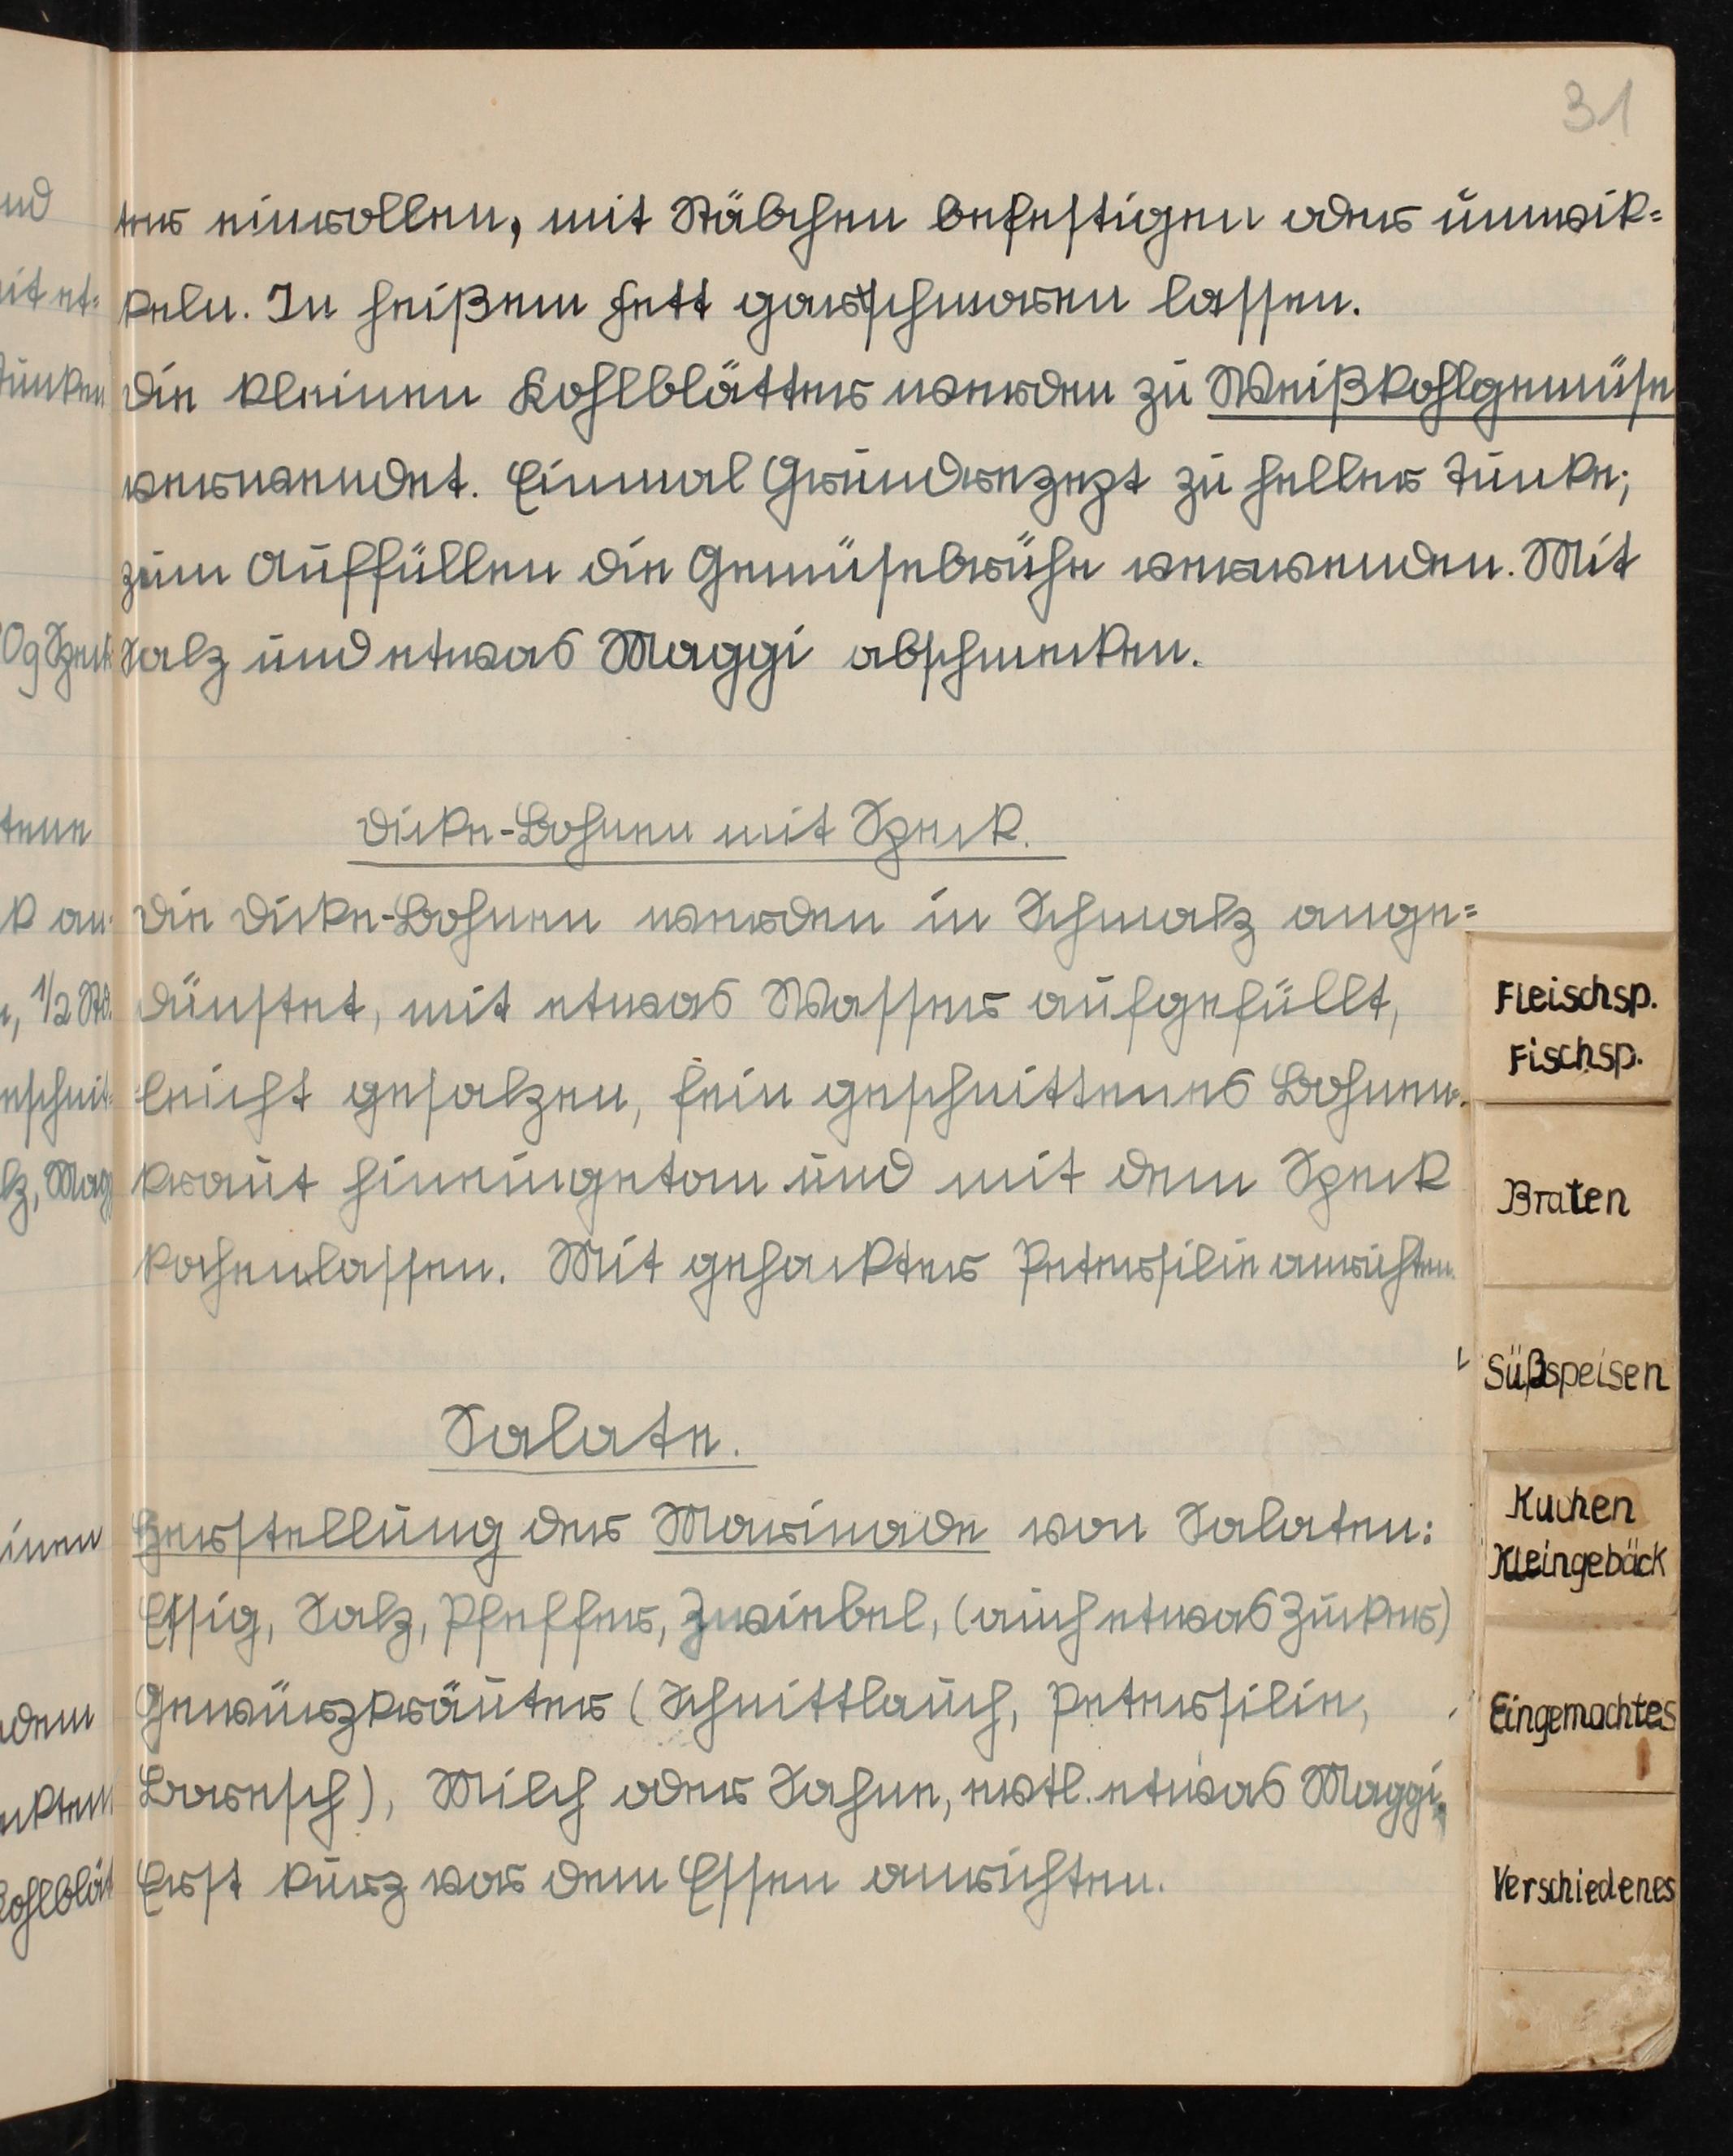 31
ter einrollen, mit Stäbchen befestigen oder umwik=
keln. In heißem Fett garschmoren lassen.
Die kleinen Kohlblätter werden zu Weißkohlgemüse
verwendet. Einmal Grundrezept zu heller Tunke;
zum Auffüllen die Gemüsebrühe verwenden. Mit
Salz und etwas Maggi abschmecken.
Dicke-Bohnen mit Speck.
Die Dicke-Bohnen werden in Schmalz ange=
dünstet, mit etwas Wasser aufgefüllt,
leicht gesalzen, fein geschnittenes Bohnen=
kraut hineingetan und mit dem Speck
kochenlassen. Mit gehackter Petersilie anrichten.
Salate.
Herstellung der Marinade von Salaten:
Essig, Salz, Pfeffer, Zwiebel, (auch etwas Zucker)
Gewürzkräuter (Schnittlauch, Petersilie,
Boresch), Milch oder Sahne, evtl. etwas Maggi.
Erst kurz vor dem Essen anrichten.
Fleischsp.
Fischsp.
Braten
Süßspeisen
Kuchen
Kleingebäck
Eingemachtes
Verschiedenes
nd
it et=
Tunken
0g Speck
tene
k an=
, 1/2 Std.
eschnit=
lz, Mag
inen
dem
ckten
Kohlblät